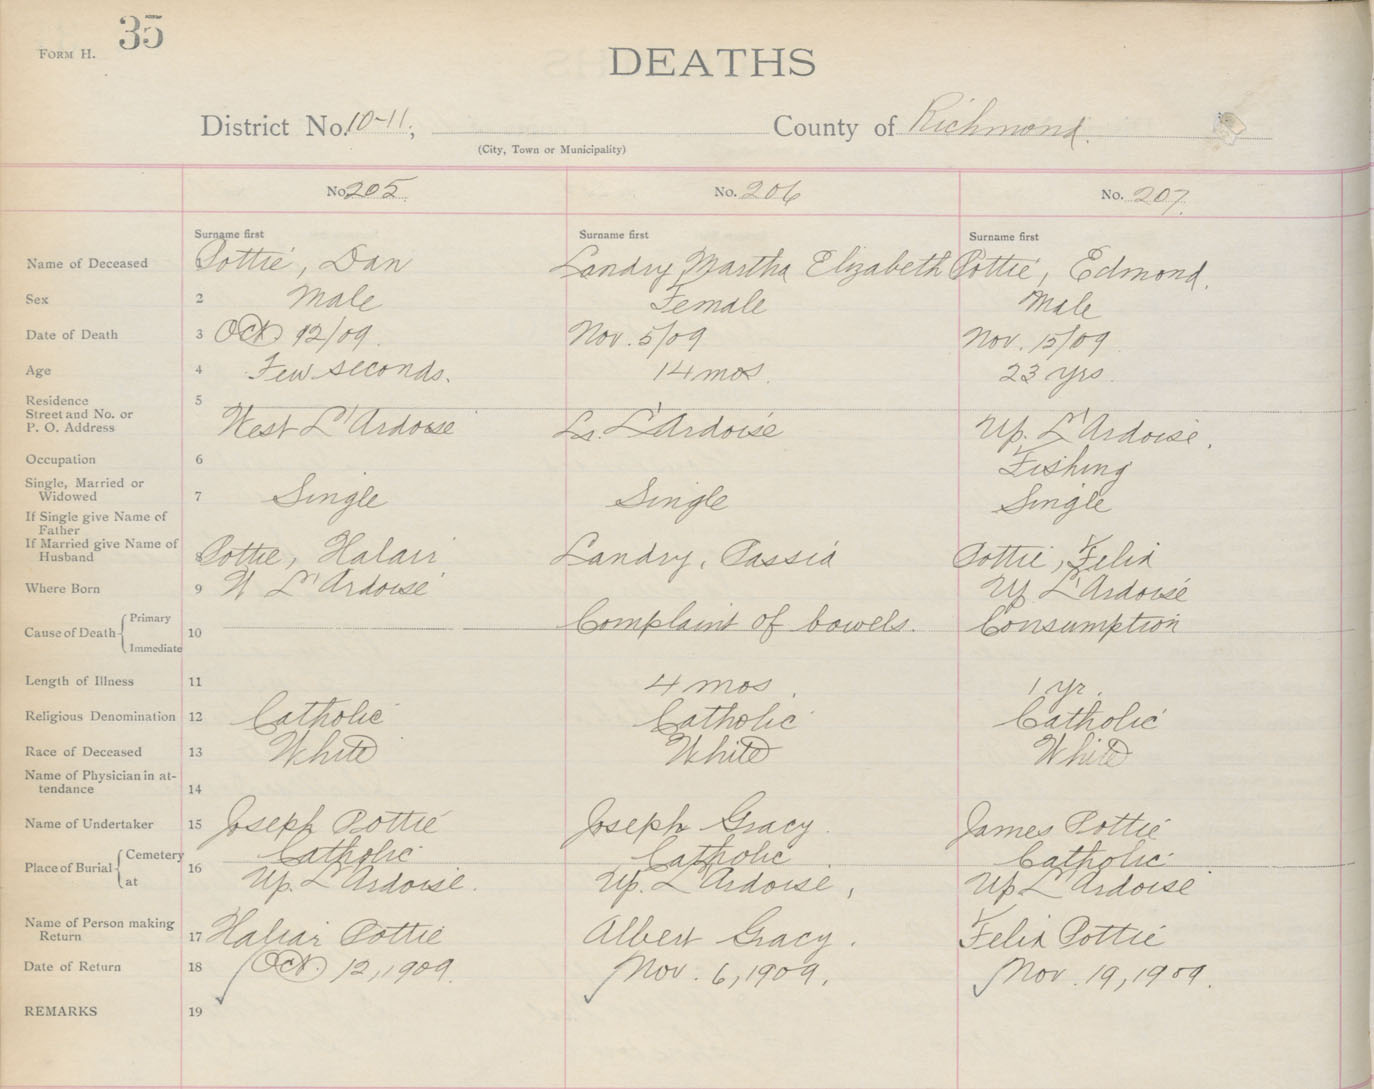 35
FORM H.
DEATHS
District No. 10-11, County of Richmond.
(City, Town or Municipality)
No. 205. No. 206 No. 207.
Surname first Surname first Surname first
Name of Deceased 1 Pottie, Dan Landry, Martha Elizabeth Pottie, Edmond.
Sex 2 Male Female Male
Date of Death 3 Oct 12/09. Nov. 5/09 Nov. 15/09
Age 4 Few seconds. 14 mos. 23 yrs
Residence 5
Street and No. or
P. O. Address West L'Ardoise Lr. L'Ardoise Up. L'Ardoise.
Occupation 6 Fishing
Single, Married or
Widowed 7 Single Single Single
If Single give Name of
Father
If Married give Name of
Husband 8 Pottie, Halair Landry, Passia Pottie, Felix
Where Born 9 W L'Ardoise Up L'Ardoise
Cause of Death { Primary Immediate 10 Complaint of bowels. Consumption
Length of Illness 11 4 mos. 1 yr.
Religious Denomination 12 Catholic Catholic Catholic
Race of Deceased 13 White White White
Name of Physician in at-
tendance 14
Name of Undertaker 15 Joseph Pottie Joseph Gracy. James Pottie
Place of Burial { Cemetery 16 Catholic Catholic Catholic
at Up. L'Ardoise. Up. L'Ardoise, Up L'Ardoise
Name of Person making
Return 17 Haliar Pottie Albert Gracy. Felix Pottie
Date of Return 18 Oct. 12, 1909. Nov. 6, 1909. Nov. 19, 1909.
REMARKS 19